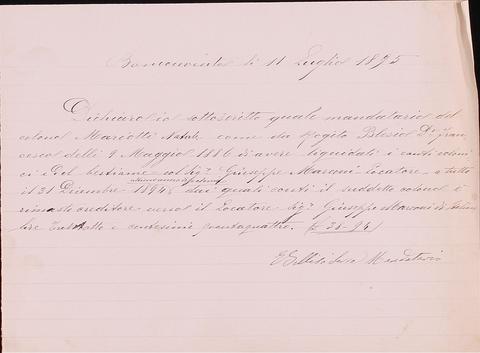 li 11 Luglio 1895
Dichiaro io sottoscritto quale mandatario del
colono Mariotti Natale come da rogito Blesio Dr. Fran
cesco delli 9 Maggio 1886 di avere liquidati i conti coloni
ci e del bestiame col Sig. Giuseppe Marconi Locatore a tutto
il 31 Dicembre 1894, dai quali conti il suddetto colono è
rimasto creditore verso il Locatore Sig. Giuseppe Marconi di
lire trentotto e centesimi
Mandatario